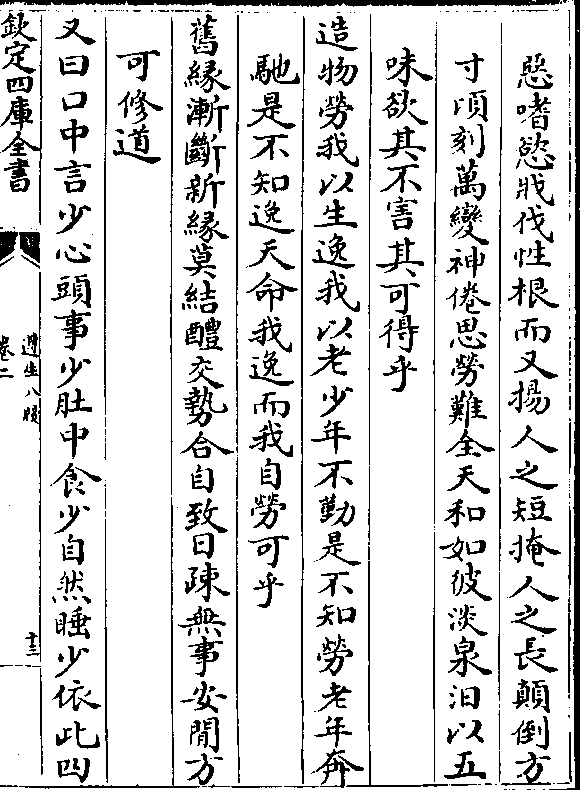 惡嗜慾戕伐性根而又揚人之短掩人之長顛倒方
寸頃刻萬變神倦思勞難全天和如彼淡泉汩以五
味欲其不害其可得乎
造物勞我以生逸我以老少年不勤是不知勞老年奔
馳是不知逸天命我逸而我自勞可乎
舊緣漸斷新緣莫結醴交勢合自致日疎無事安閒方
可修道
又曰口中言少心頭事少肚中食少自然睡少依此四
欽定四庫全書
遵生八牋
卷二
十三